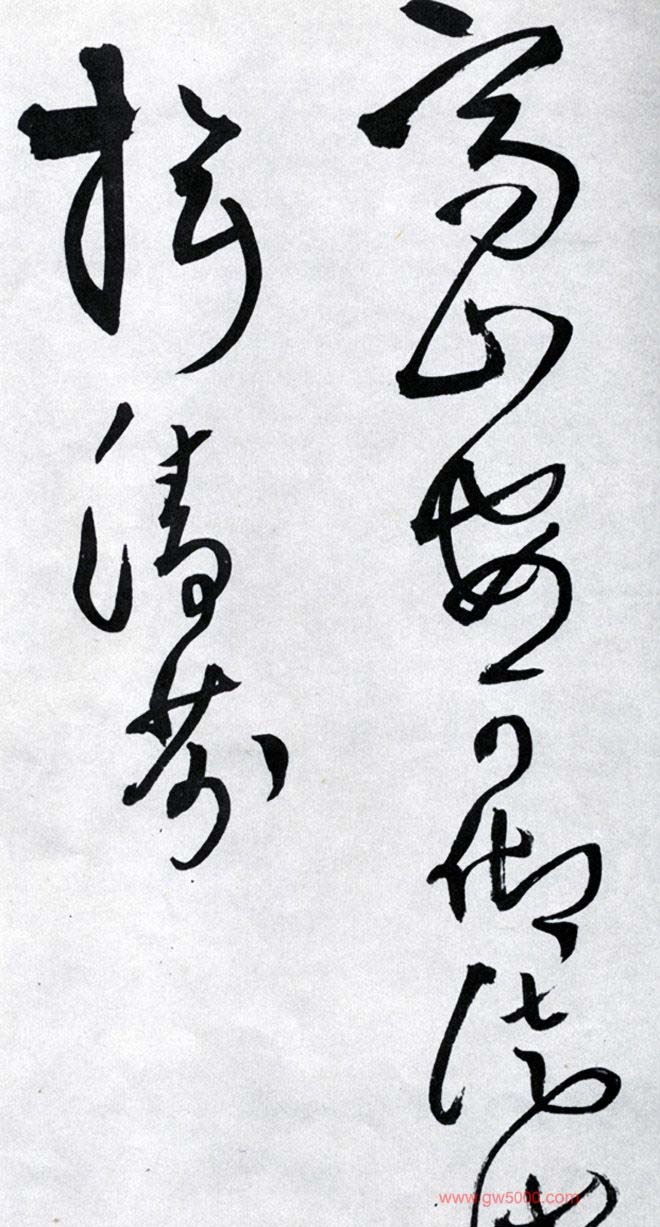 高山安可仰徒此
揖清芬
www.gw5000.com